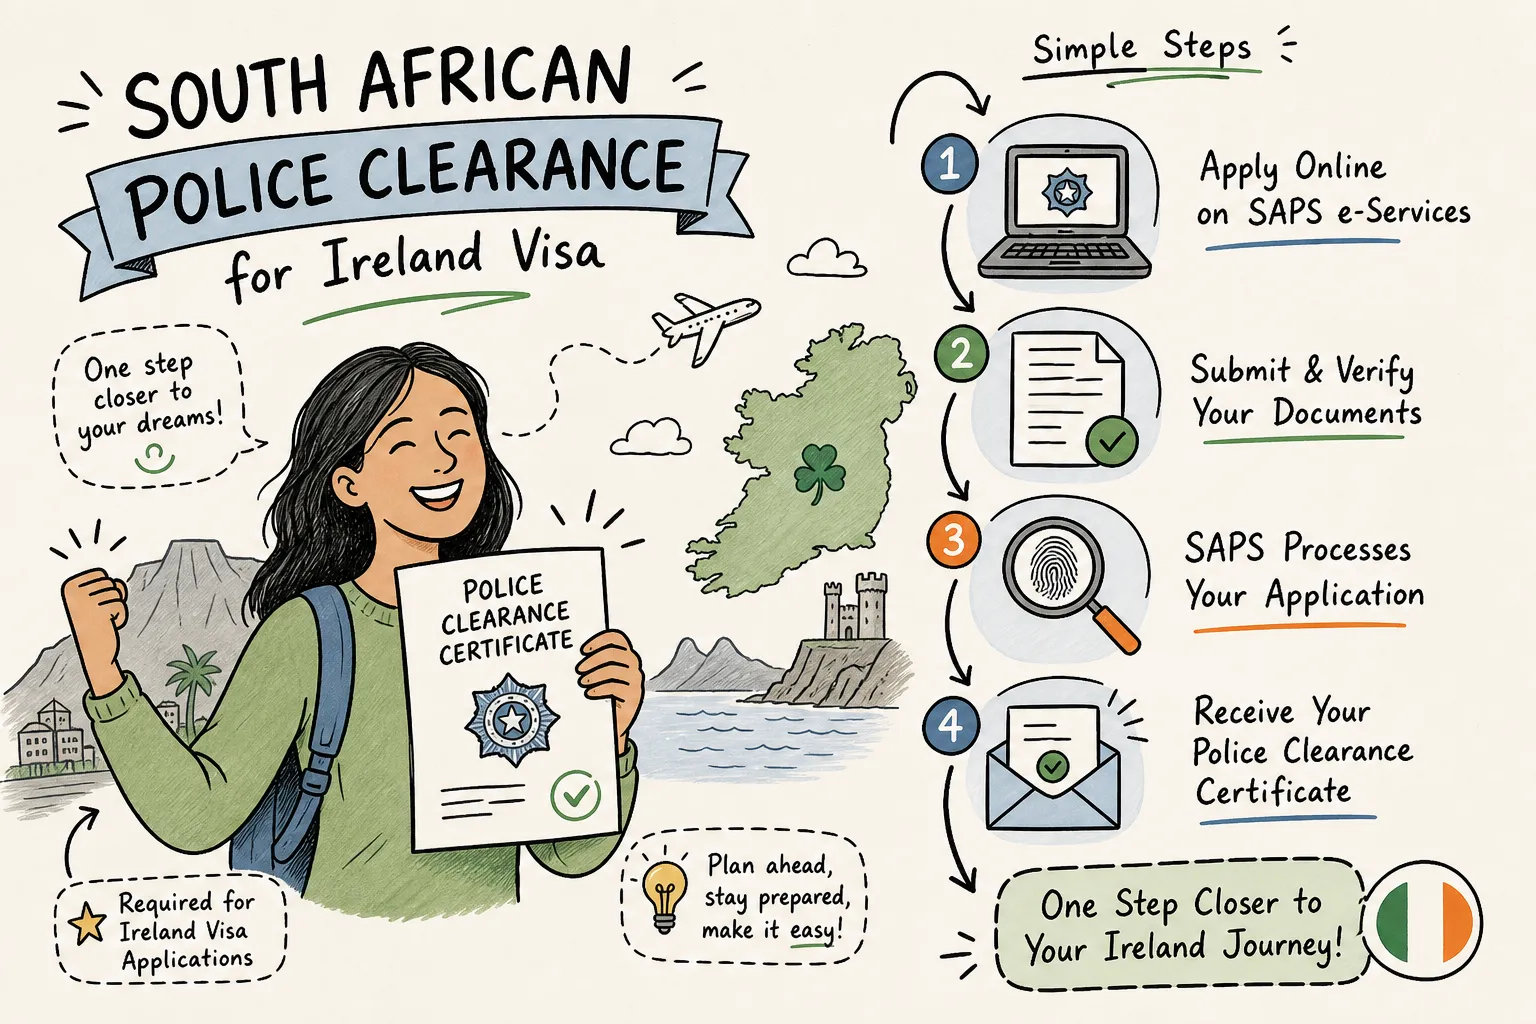 SOUTH AFRICAN
POLICE CLEARANCE
for Ireland Visa
One step
closer to
your dreams!
POLICE
CLEARANCE
CERTIFICATE
Required for
Ireland Visa
Applications
Plan ahead,
stay prepared,
make it easy!
Simple Steps
1
Apply Online
on SAPS e-Services
2
Submit & Verify
Your Documents
3
SAPS Processes
Your Application
4
Receive Your
Police Clearance
Certificate
One Step Closer to
Your Ireland Journey!